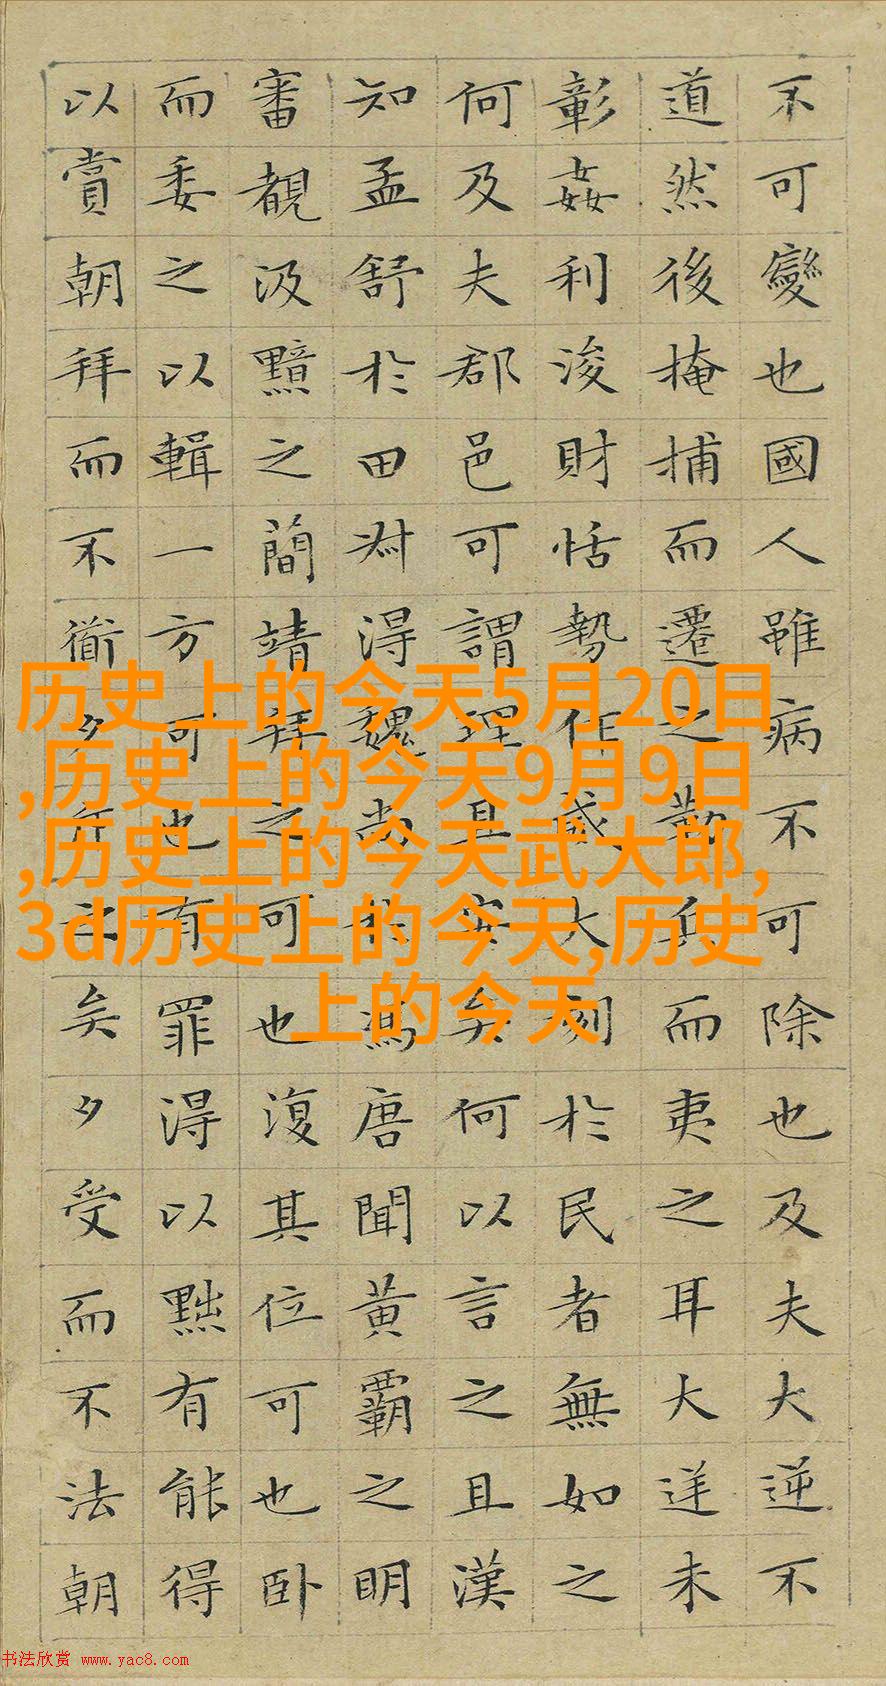 不可變也國人雖病不可除也及夫大逆不
道然後掩捕而遷之勒兵而夷之耳大逆未
彰姦利浚財怙勢作威大刻於民者無如之
何及夫郡邑可謂理且安矣何以言之且漢
知孟舒於田叔得魏尚於馮唐聞黃霸之明
審覩汲黯之簡靖拜之可也復其位可也臥
而委之以輯一方可也有罪得以黜有能得
以賞朝拜而不衜夕斥之矣夕受而不法朝
历史上的今天5月20日
,历史上的今天9月9日
,历史上的今天武大郎,
3d历史上的今天,历史
上的今天
书法欣赏 www.yac8.com